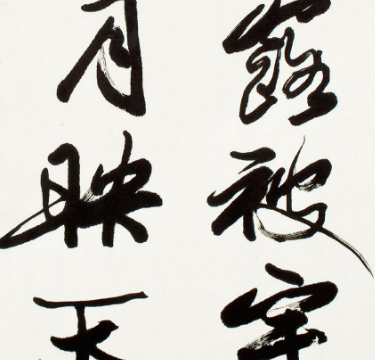 露被宇
月映天